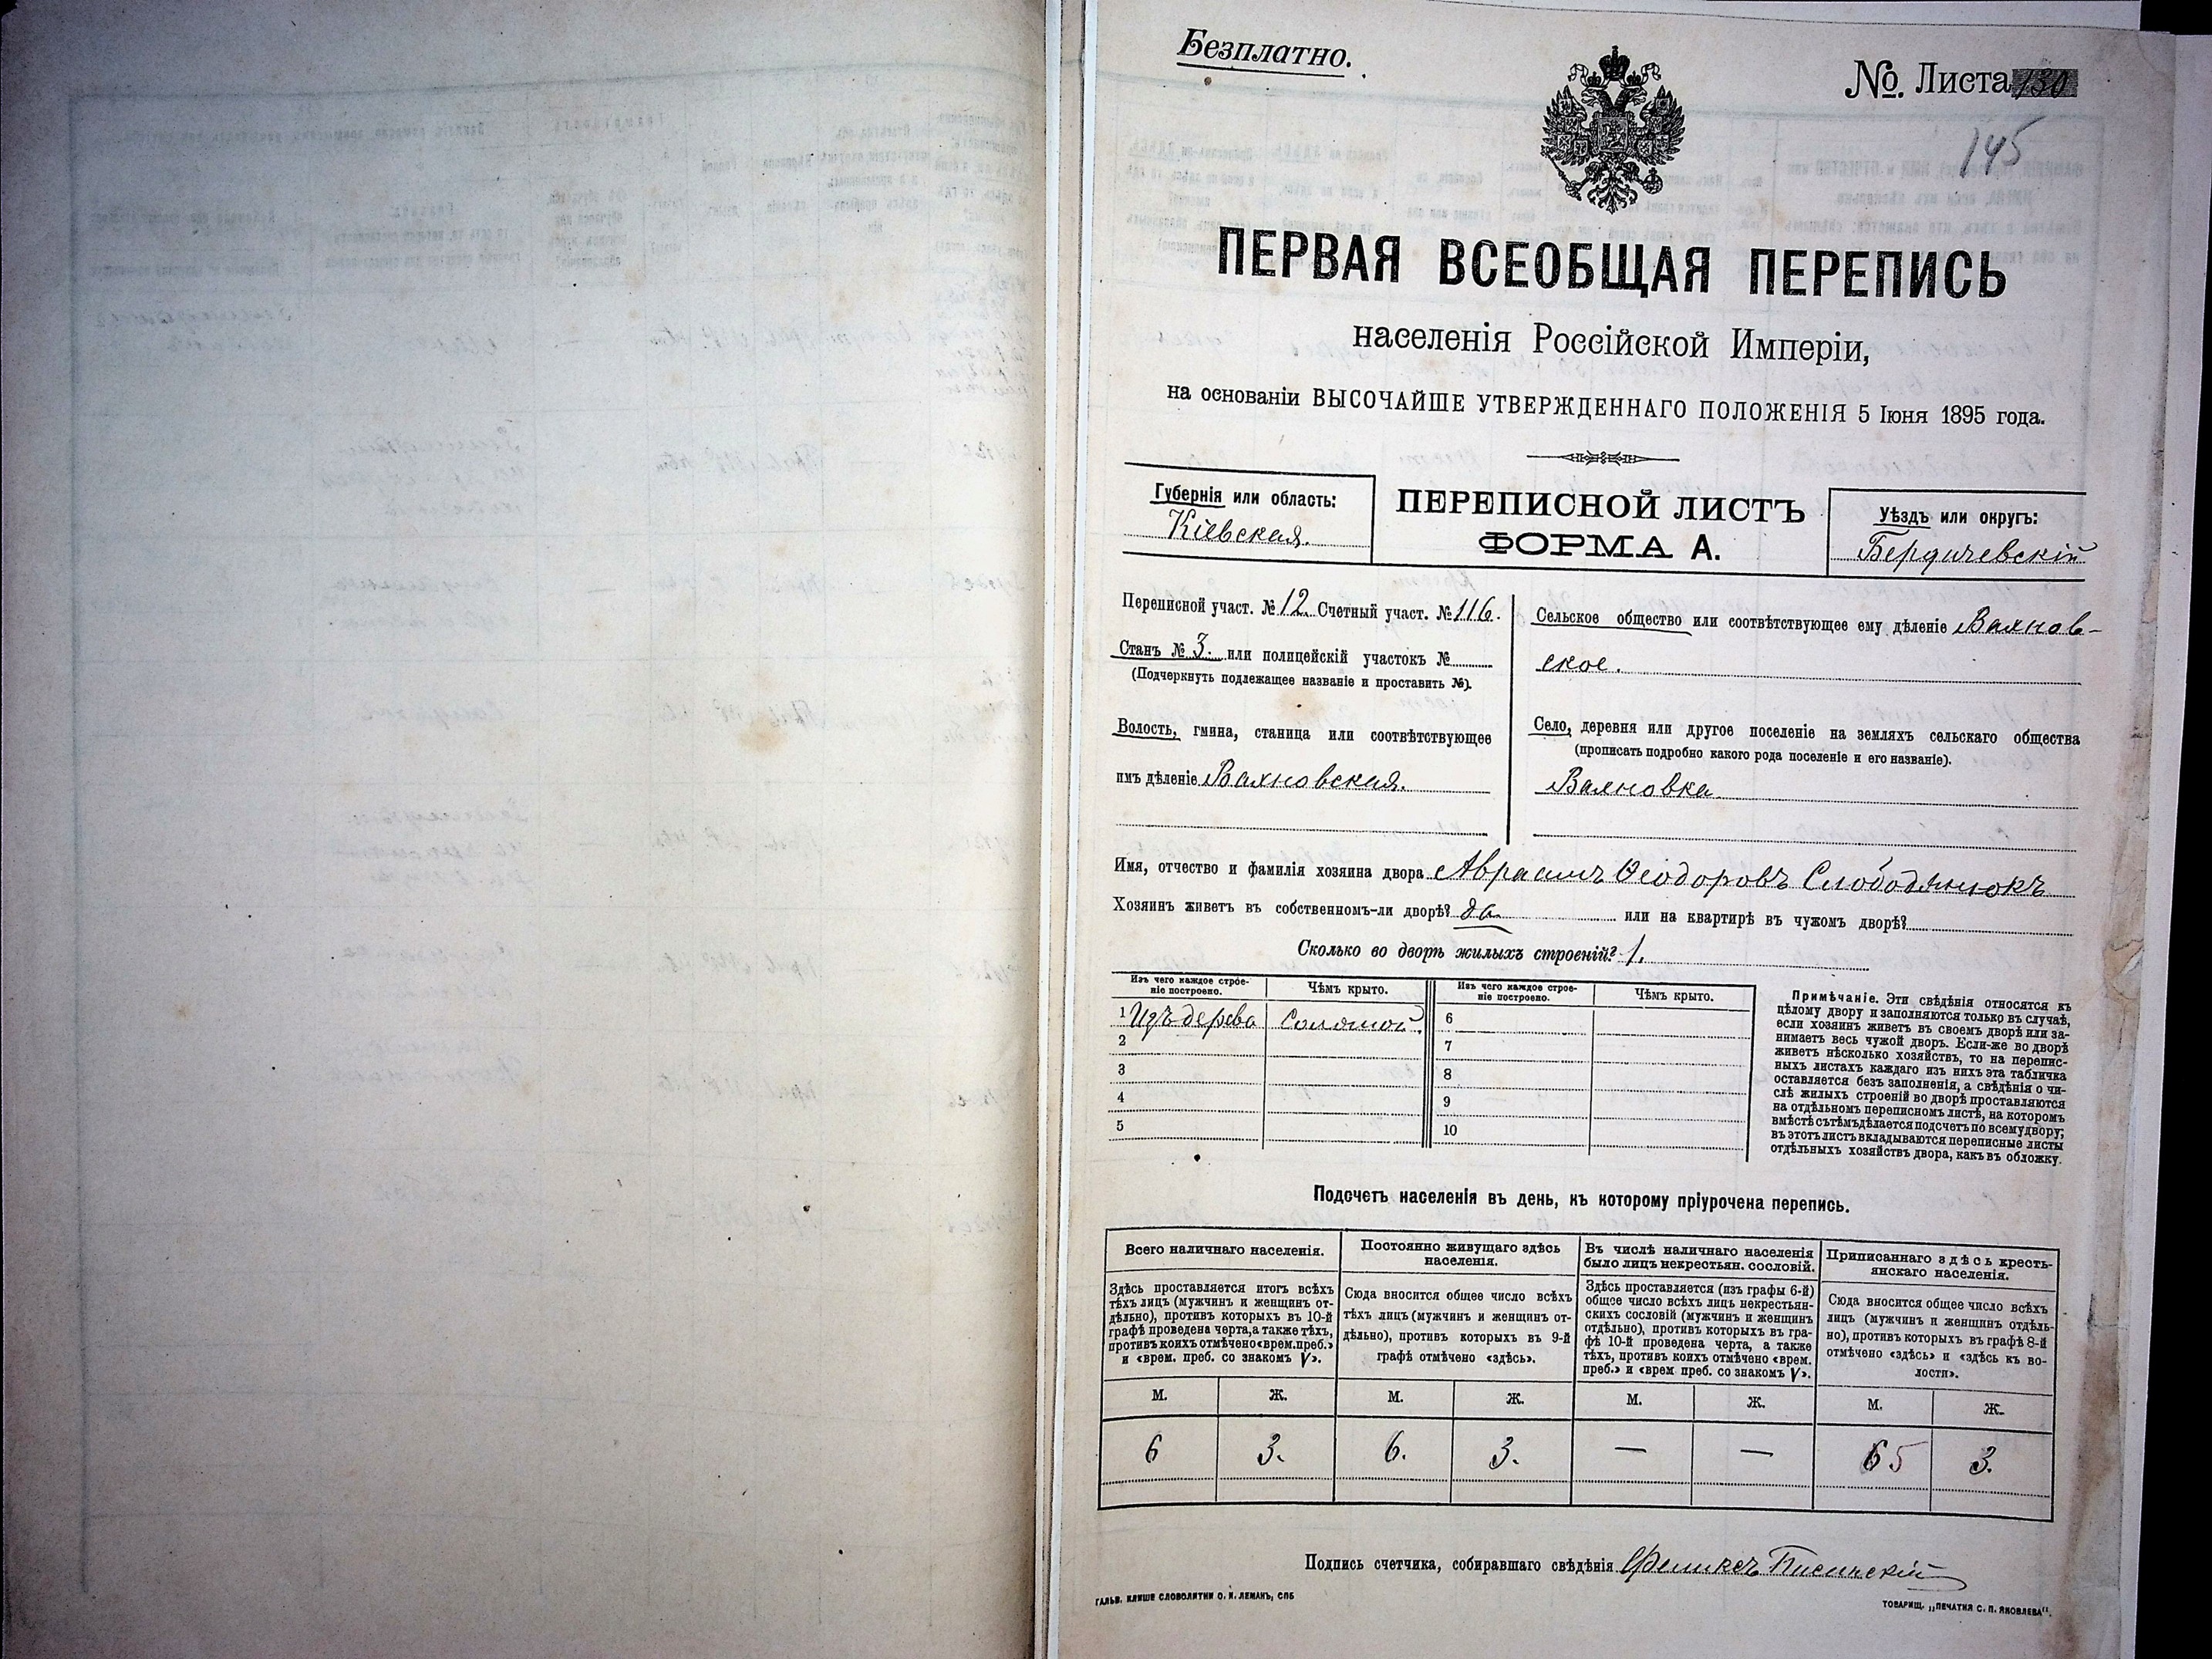 Безплатно.
№ Листа 130
145
ПЕРВАЯ ВСЕОБЩАЯ ПЕРЕПИСЬ
населенія Россійской Имперіи,
на основаніи ВЫСОЧАЙШЕ УТВЕРЖДЕННАГО ПОЛОЖЕНІЯ 5 Іюня 1895 года.
Губернія или область:
Кіевская.
ПЕРЕПИСНОЙ ЛИСТЪ
ФОРМА А.
Уѣздъ или округъ:
Бердичевскій
Переписной участ. № 12. Счетный участ. № 116.
Станъ № 3. или полицейскій участокъ №
(Подчеркнуть подлежащее названіе и проставить №).
Волость, гмина, станица или соотвѣтствующее
имъ дѣленіе Вахновская.
Сельское общество или соотвѣтствующее ему дѣленіе Вахнов-
ское.
Село, деревня или другое поселеніе на земляхъ сельскаго общества
(прописать подробно какого рода поселеніе и его названіе).
Вахновка
Имя, отчество и фамилія хозяина двора Авраамъ Ѳеодоровъ Слободянюкъ
Хозяинъ живетъ въ собственномъ-ли дворѣ? да или на квартирѣ въ чужомъ дворѣ?
Сколько во дворѣ жилыхъ строеній? 1.
Изъ чего каждое строе-
ніе построено.
Чѣмъ крыто.
Изъ чего каждое строе-
ніе построено.
Чѣмъ крыто.
1 Изъ дерева Соломой. 6
2 7
3 8
4 9
5 10
Примѣчаніе. Эти свѣдѣнія относятся къ
цѣлому двору и заполняются только въ случаѣ,
если хозяинъ живетъ въ своемъ дворѣ или за-
нимаетъ весь чужой дворъ. Если-же во дворѣ
живетъ нѣсколько хозяйствъ, то на перепис-
ныхъ листахъ каждаго изъ нихъ эта табличка
оставляется безъ заполненія, а свѣдѣнія о чи-
слѣ жилыхъ строеній во дворѣ проставляются
на отдѣльномъ переписномъ листѣ, на которомъ
вмѣстѣ съ тѣмъ дѣлается подсчетъ по всему двору;
въ этотъ листъ вкладываются переписные листы
отдѣльныхъ хозяйствъ двора, какъ въ обложку.
Подсчетъ населенія въ день, къ которому пріурочена перепись.
Всего наличнаго населенія.
Здѣсь проставляется итогъ всѣхъ
тѣхъ лицъ (мужчинъ и женщинъ от-
дѣльно), противъ которыхъ въ 10-й
графѣ проведена черта, а также тѣхъ,
противъ коихъ отмѣчено «врем. преб.»
и «врем. преб. со знакомъ V».
Постоянно живущаго здѣсь
населенія.
Сюда вносится общее число всѣхъ
тѣхъ лицъ (мужчинъ и женщинъ от-
дѣльно), противъ которыхъ въ 9-й
графѣ отмѣчено «здѣсь».
Въ числѣ наличнаго населенія
было лицъ некрестьян. сословій.
Здѣсь проставляется (изъ графы 6-й)
общее число всѣхъ лицъ некрестьян-
скихъ сословій (мужчинъ и женщинъ
отдѣльно), противъ которыхъ въ гра-
фѣ 10-й проведена черта, а также
тѣхъ, противъ коихъ отмѣчено «врем.
преб.» и «врем преб. со знакомъ V».
Приписаннаго здѣсь кресть-
янскаго населенія.
Сюда вносится общее число всѣхъ
лицъ (мужчинъ и женщинъ отдѣль-
но), противъ которыхъ въ графѣ 8-й
отмѣчено «здѣсь» и «здѣсь къ во-
лости».
М. Ж. М. Ж. М. Ж. М. Ж.
6 3. 6. 3. — — 6 5 3.
Подпись счетчика, собиравшаго свѣдѣнія Феликсъ
ГАЛЬВ. КЛИШЕ СЛОВОЛИТНИ О. И. ЛЕМАНЪ, СПБ
ТОВАРИЩ. „ПЕЧАТНЯ С. П. ЯКОВЛЕВА".